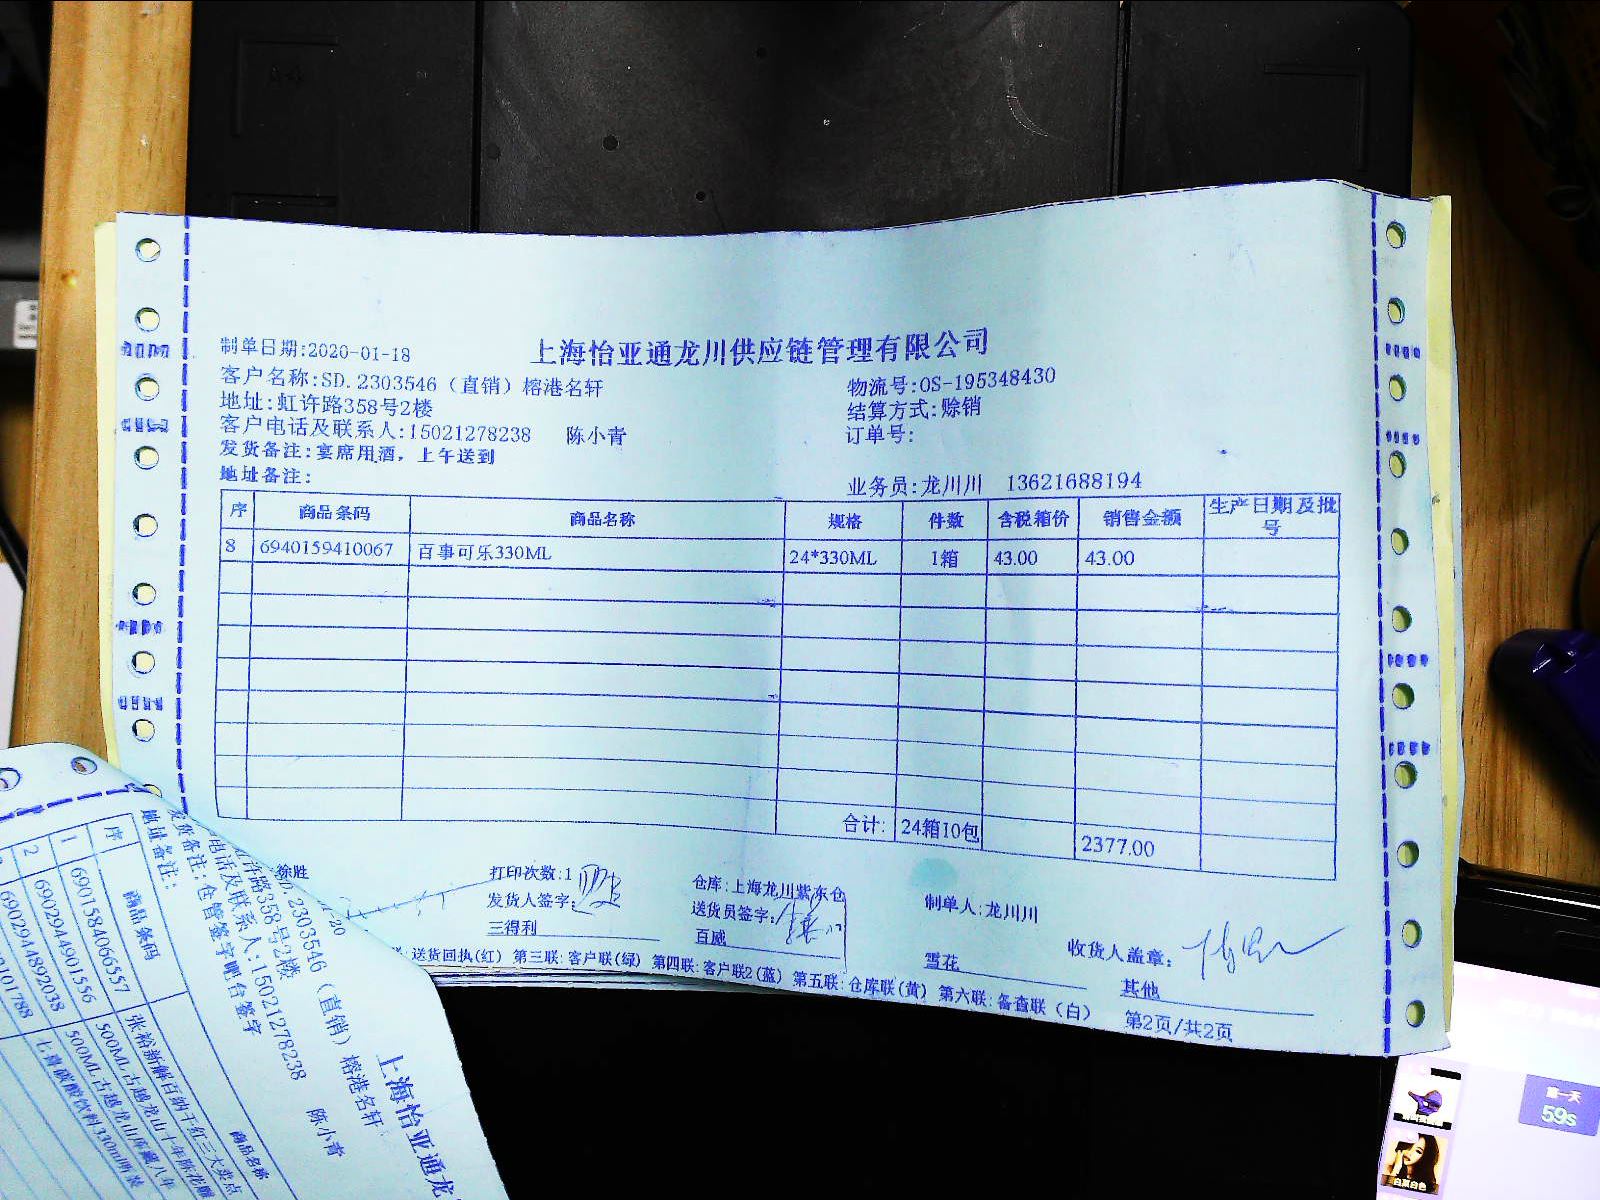 上海怡亚通龙川供应链管理有限公司
制单日期:2020-01-18
客户名称:SD.2303546（直销）榕港名轩 物流号:OS-195348430
地址:虹许路358号2楼 结算方式:赊销
客户电话及联系人:15021278238 陈小青 订单号:
发货备注:宴席用酒，上午送到
地址备注: 业务员:龙川川 13621688194
序 商品条码 商品名称 规格 件数 含税箱价 销售金额 生产日期及批号
8 6940159410067 百事可乐330ML 24*330ML 1箱 43.00 43.00
合计: 24箱10包 2377.00
徐胜 打印次数:1 仓库:上海龙川紫东仓 制单人:龙川川
发货人签字: 送货员签字: 收货人盖章:
三得利 百威 雪花 其他
送货回执(红) 第三联:客户联(绿) 第四联:客户联2(蓝) 第五联:仓库联(黄) 第六联:备查联（白）
第2页/共2页
上海怡亚通龙
2303546（直销）榕港名轩
虹许路358号2楼
电话及联系人:15021278238 陈小青
发货备注:仓管签字吧台签字
地址备注:
序 商品条码 商品名称
1 6901584066557 张裕新解百纳干红三大卖点
2 6902944901556 500ML古越龙山十年陈花雕
6902944892038 500ML古越龙山库藏八年
七喜碳酸饮料330ml听装
第一天
59s